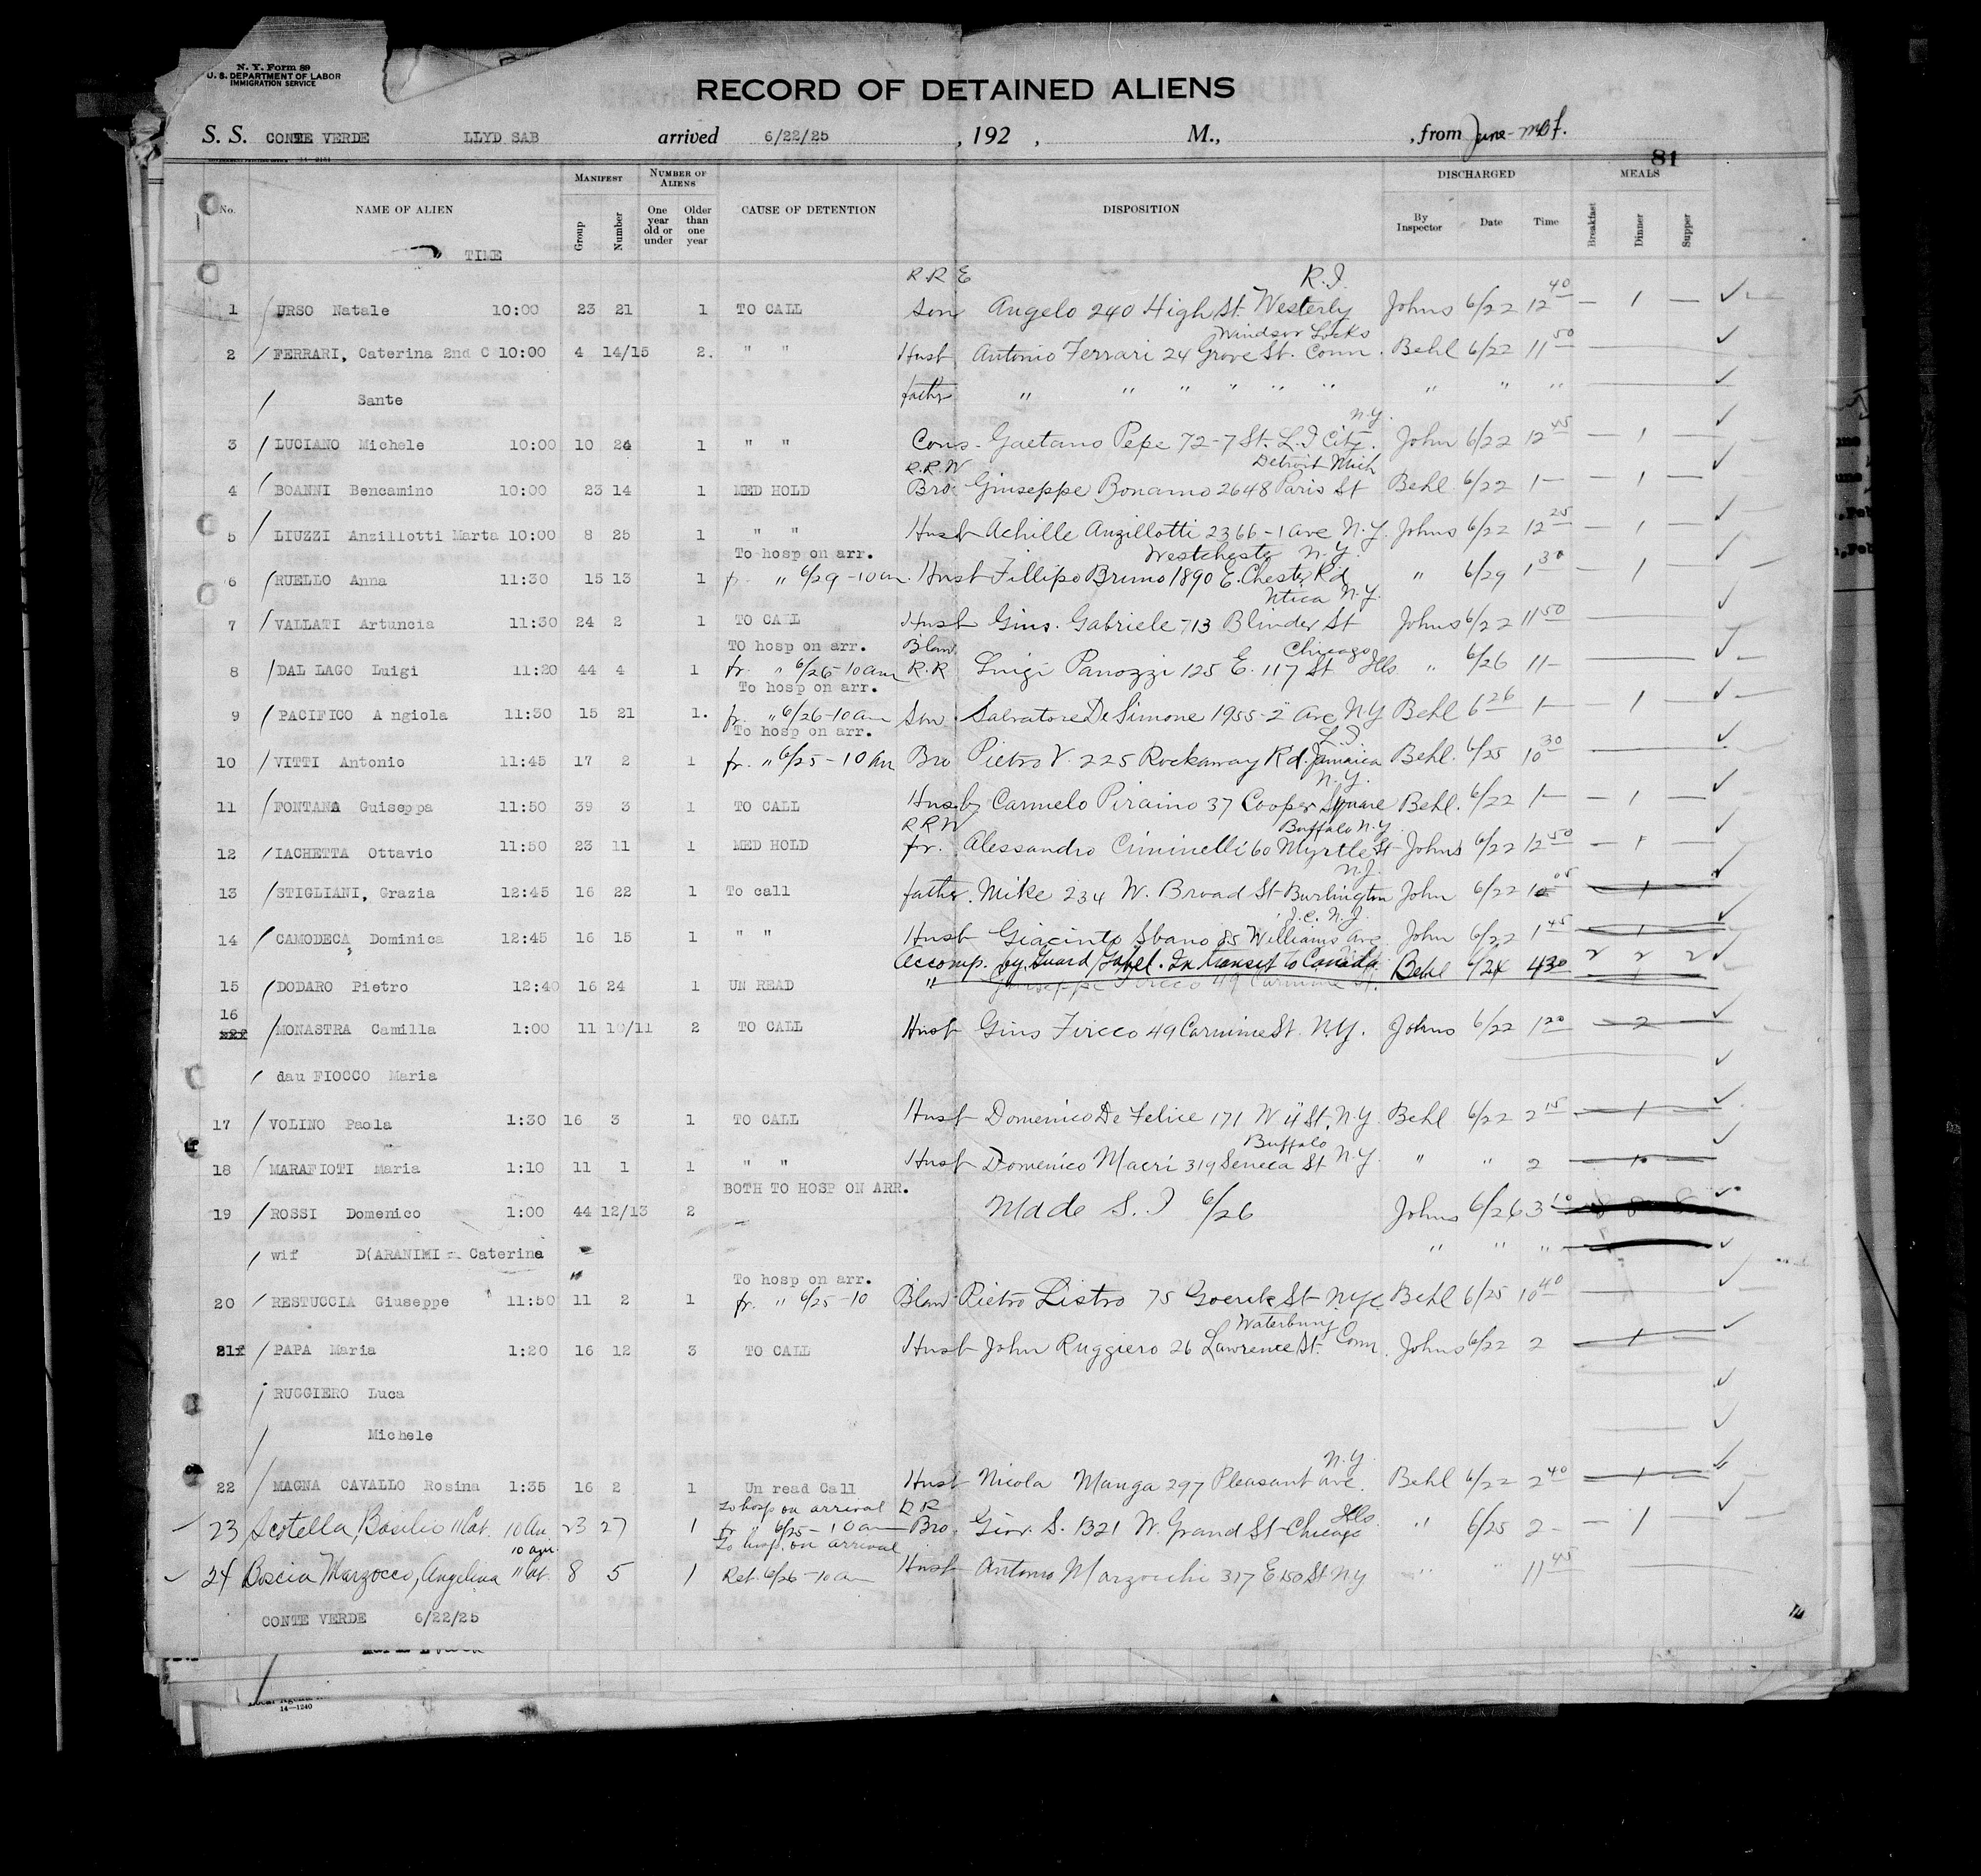 N. Y. Form 89
U. S. DEPARTMENT OF LABOR
IMMIGRATION SERVICE
RECORD OF DETAINED ALIENS
S. S. CONTE VERDE LLYD SAB arrived 6/22/25 , 192 , M., , from June-
14-2151
81
No. NAME OF ALIEN TIME MANIFEST Group Number NUMBER OF ALIENS One year old or under Older than one year CAUSE OF DETENTION DISPOSITION DISCHARGED By Inspector Date Time MEALS Breakfast Dinner Supper
R.R E R.I.
1 URSO Natale 10:00 23 21 1 TO CALL Son Angelo 240 High St. Westerly Johns 6/22 12 40 — 1 —
Windsor Locks
2 FERRARI, Caterina 2nd C 10:00 4 14/15 2. " " Husb Antonio Ferrari 24 Grove St. Conn. Behl 6/22 11 50
Sante father " " " " " " " " "
N.Y.
3 LUCIANO Michele 10:00 10 24 1 " " Cous. Gaetano Pepe 72-7 St. L.I City. John 6/22 12 45 — 1 —
R.R.W Detroit Mich
4 BOANNI Bencamino 10:00 23 14 1 MED HOLD Bro Giuseppe Bonanno 2648 Paris St Behl 6/22 1— — 1 —
5 LIUZZI Anzillotti Marta 10:00 8 25 1 " " Husb Achille Anzillotti 2366-1 Ave N.Y. Johns 6/22 12 25 — 1 —
To hosp on arr. Westchester N.Y.
6 RUELLO Anna 11:30 15 13 1 fr. " 6/29-10am. Husb Fillipo Bruno 1890 E. Chester Rd " 6/29 1 30 — 1 —
Utica N.Y.
7 VALLATI Artuncia 11:30 24 2 1 TO CALL Husb Gius. Gabriele 713 Blinder St Johns 6/22 11 50
TO hosp on arr. Blaw Chicago
8 DAL LAGO Luigi 11:20 44 4 1 fr. " 6/26-10am R.R Luigi Panozzi 125 E. 117 St Ills " 6/26 11—
To hosp on arr.
9 PACIFICO Angiola 11:30 15 21 1. fr. " 6/26-10am Son Salvatore De Simone 1955-2" Ave NY Behl 6 26 1— — 1 —
To hosp on arr. L.I.
10 VITTI Antonio 11:45 17 2 1 fr. " 6/25-10 am Bro Pietro V. 225 Rockaway Rd. Jamaica Behl. 6/25 10 30
N.Y.
11 FONTANA Guiseppa 11:50 39 3 1 TO CALL Husb Carmelo Piraino 37 Cooper Square Behl. 6/22 1— — 1 —
R R W Buffalo N.Y.
12 IACHETTA Ottavio 11:50 23 11 1 MED HOLD fr. Alessandro Ciminelli 60 Myrtle St Johns 6/22 12 50 — 1 —
N.J.
13 STIGLIANI, Grazia 12:45 16 22 1 To call father. Mike 234 W. Broad St Burlington John 6/22 1 05 1
J.C. N.J.
14 CAMODECA Dominica 12:45 16 15 1 " " Husb Giacinto Sbano 85 Williams Ave John 6/22 1 45 1
Accomp. by Guard In transit to Canada. Behl 6/24 4 30 2 2 2
15 DODARO Pietro 12:40 16 24 1 UN READ " Giuseppe 49 Carmine St. 1
16 MONASTRA Camilla 1:00 11 10/11 2 TO CALL Husb Gius Fiocco 49 Carmine St. N.Y. Johns 6/22 1 20 2
dau FIOCCO Maria
17 VOLINO Paola 1:30 16 3 1 TO CALL Husb Domenico De Felice 171 W 4 St, N.Y Behl 6/22 2 15 1
Buffalo
18 MARAFIOTI Maria 1:10 11 1 1 " " Husb Domenico Macri 319 Seneca St N.Y. " " 2
BOTH TO HOSP ON ARR.
19 ROSSI Domenico 1:00 44 12/13 2 Made S. I 6/26 Johns 6/26 3 10
wif D(ARANIMI Caterina " " "
To hosp on arr.
20 RESTUCCIA Giuseppe 11:50 11 2 1 fr. " 6/25-10 Blaw Pietro Listro 75 Goerck St NYC Behl 6/25 10 40
Waterbury
21 PAPA Maria 1:20 16 12 3 TO CALL Husb John Ruggiero 26 Lawrence St. Conn. Johns 6/22 2 1
RUGGIERO Luca
Michele
N.Y.
22 MAGNA CAVALLO Rosina 1:35 16 2 1 Un read Call Husb Nicola Manga 297 Pleasant Ave. Behl 6/22 2 40 1
To hosp on arrival R R Ills.
23 Scotella, Basilio 11 Cat. 10 Am 23 27 1 fr " 6/25-10am Bro. Giov. S. 1321 W. Grand St Chicago " 6/25 2— — 1 —
10 am. To hosp. on arrival
24 Boscia Marzocco, Angelina 11 Cat. 8 5 1 Ret. 6/26-10am Husb Antonio Marzocchi 317 E 150 St N.Y " " 11 45
CONTE VERDE 6/22/25
14—1240